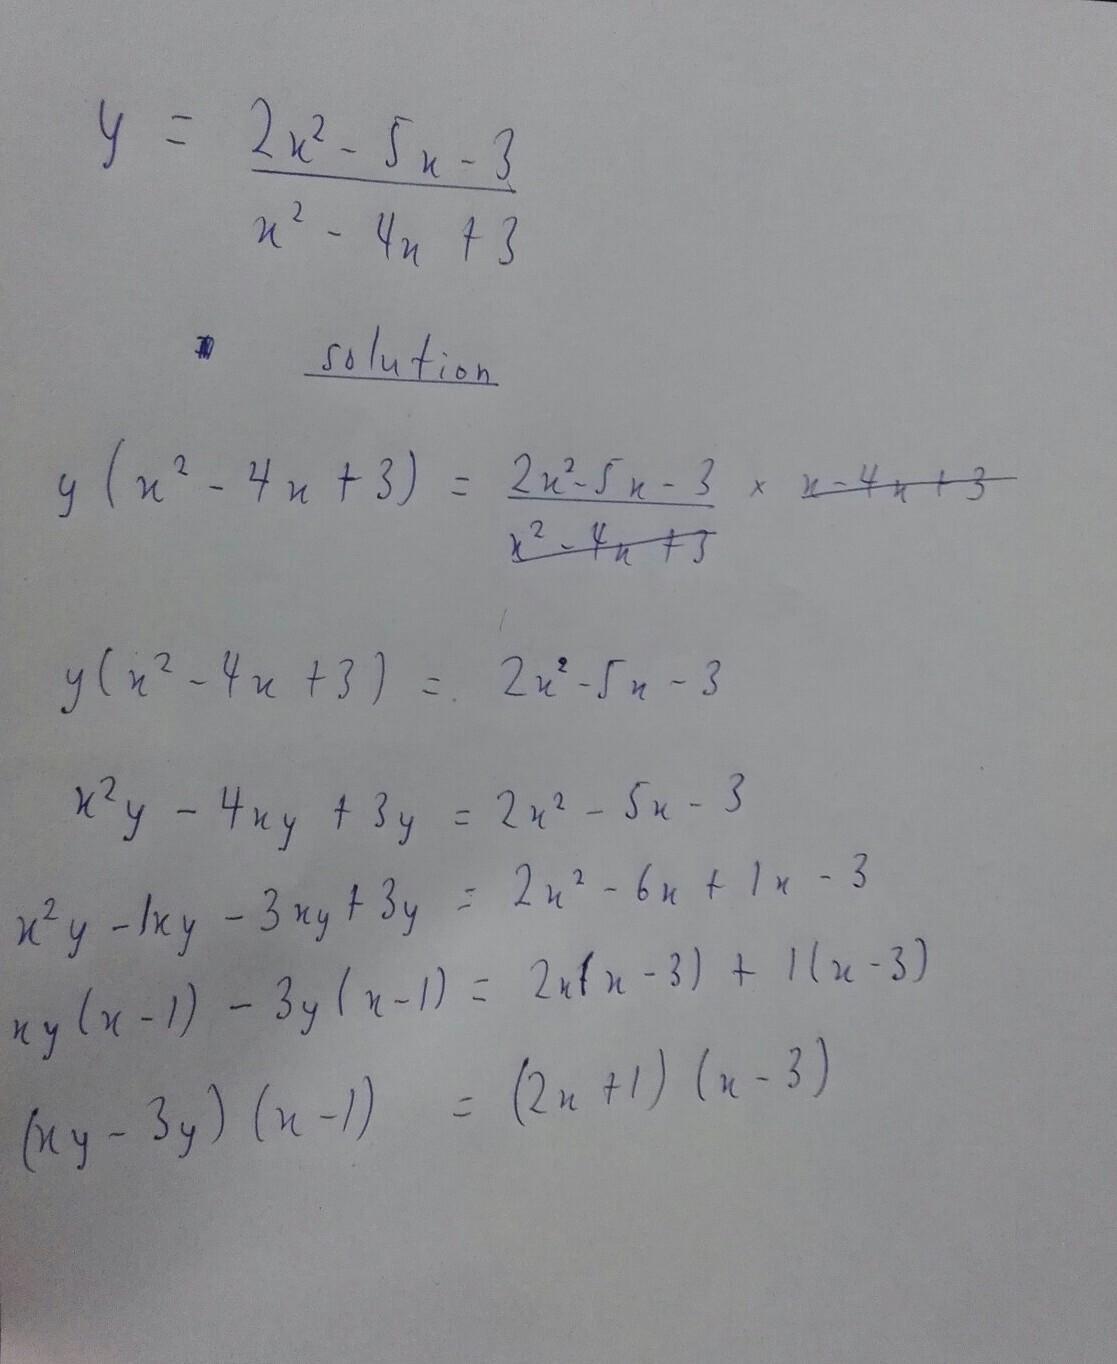 y = (2x² - 5x - 3)/(x² - 4x + 3)
solution
y(x² - 4x + 3) = (2x² - 5x - 3)/(x² - 4x + 3) × x - 4x + 3
y(x² - 4x + 3) = 2x² - 5x - 3
x²y - 4xy + 3y = 2x² - 5x - 3
x²y - 1xy - 3xy + 3y = 2x² - 6x + 1x - 3
xy(x - 1) - 3y(x - 1) = 2x(x - 3) + 1(x - 3)
(xy - 3y)(x - 1) = (2x + 1)(x - 3)